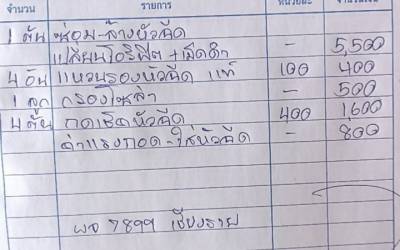 จำนวน รายการ หน่วยละ จำนวนเงิน
1 คัน ซ่อม-ล้างหัวฉีด
เปลี่ยนโอริฟิต + เม็ดดำ - 5,500
4 อัน แหวนรองหัวฉีด แท้ 100 400
1 ลูก กรองโซล่า - 500
4 ตัน กดเช็คหัวฉีด 400 1600
ค่าแรงถอด-ใส่หัวฉีด - 800
ผจ 7899 เชียงราย